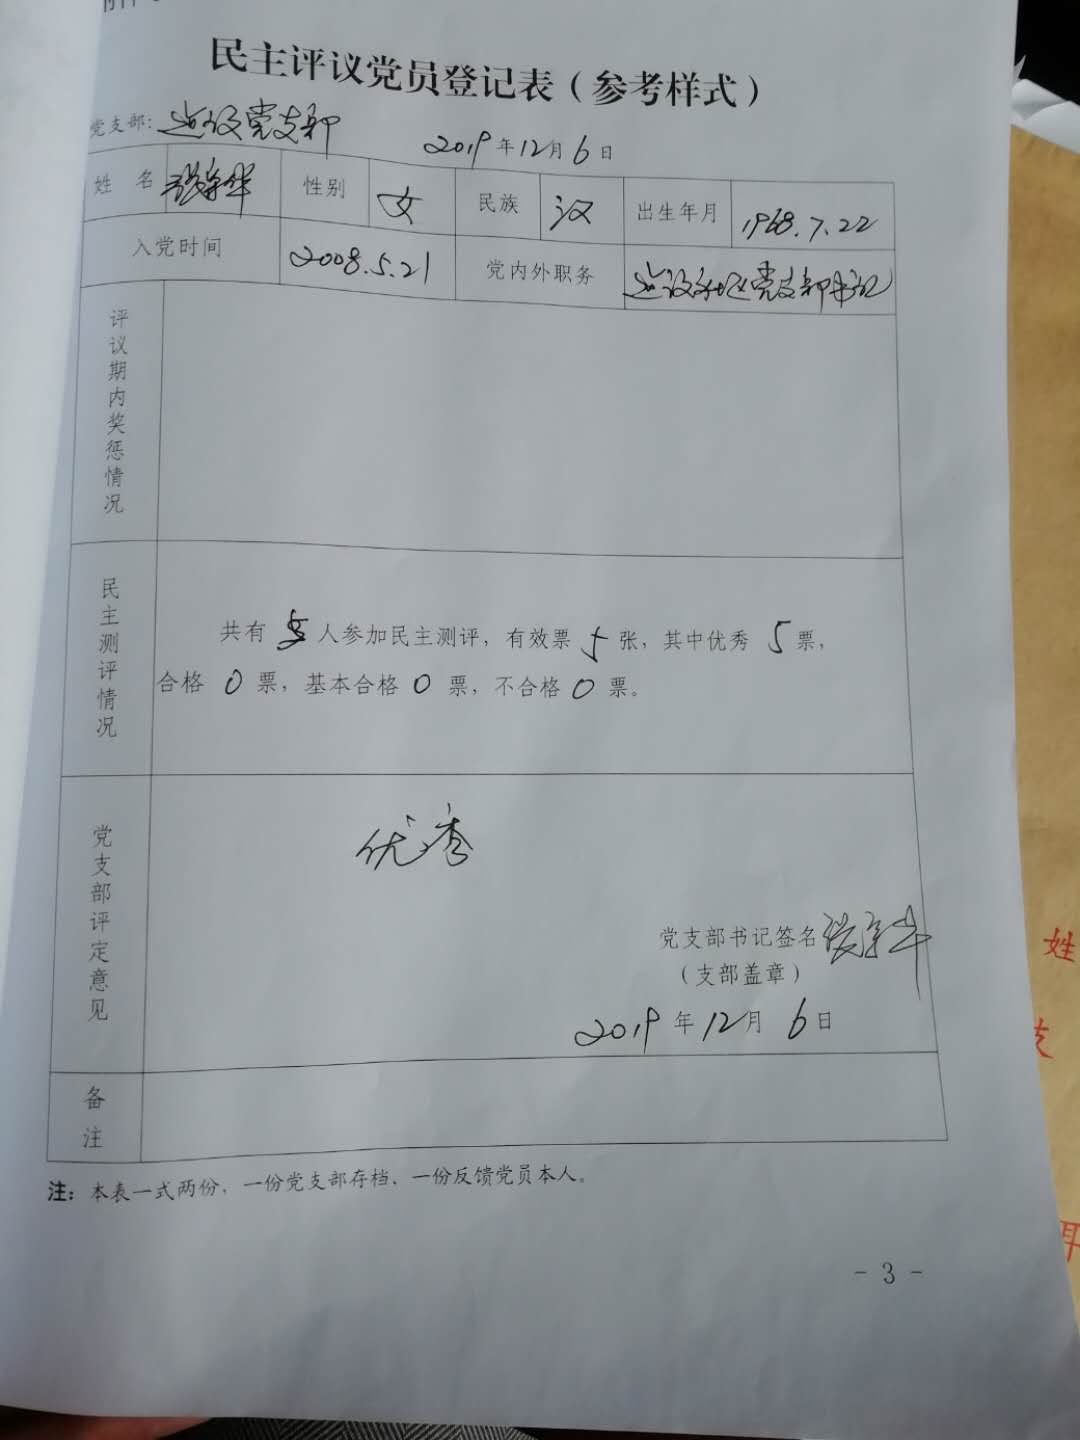 民主评议党员登记表（参考样式）
党支部：建设党支部 2019年12月6日
姓 名 性别 女 民族 汉 出生年月 1968.7.22
入党时间 2008.5.21 党内外职务 建设社区党支部书记
评议期内奖惩情况
民主测评情况
共有 5 人参加民主测评，有效票 5 张，其中优秀 5 票，
合格 0 票，基本合格 0 票，不合格 0 票。
党支部评定意见
优秀
党支部书记签名
（支部盖章）
2019年12月6日
备注
注：本表一式两份，一份党支部存档，一份反馈党员本人。
- 3 -
姓